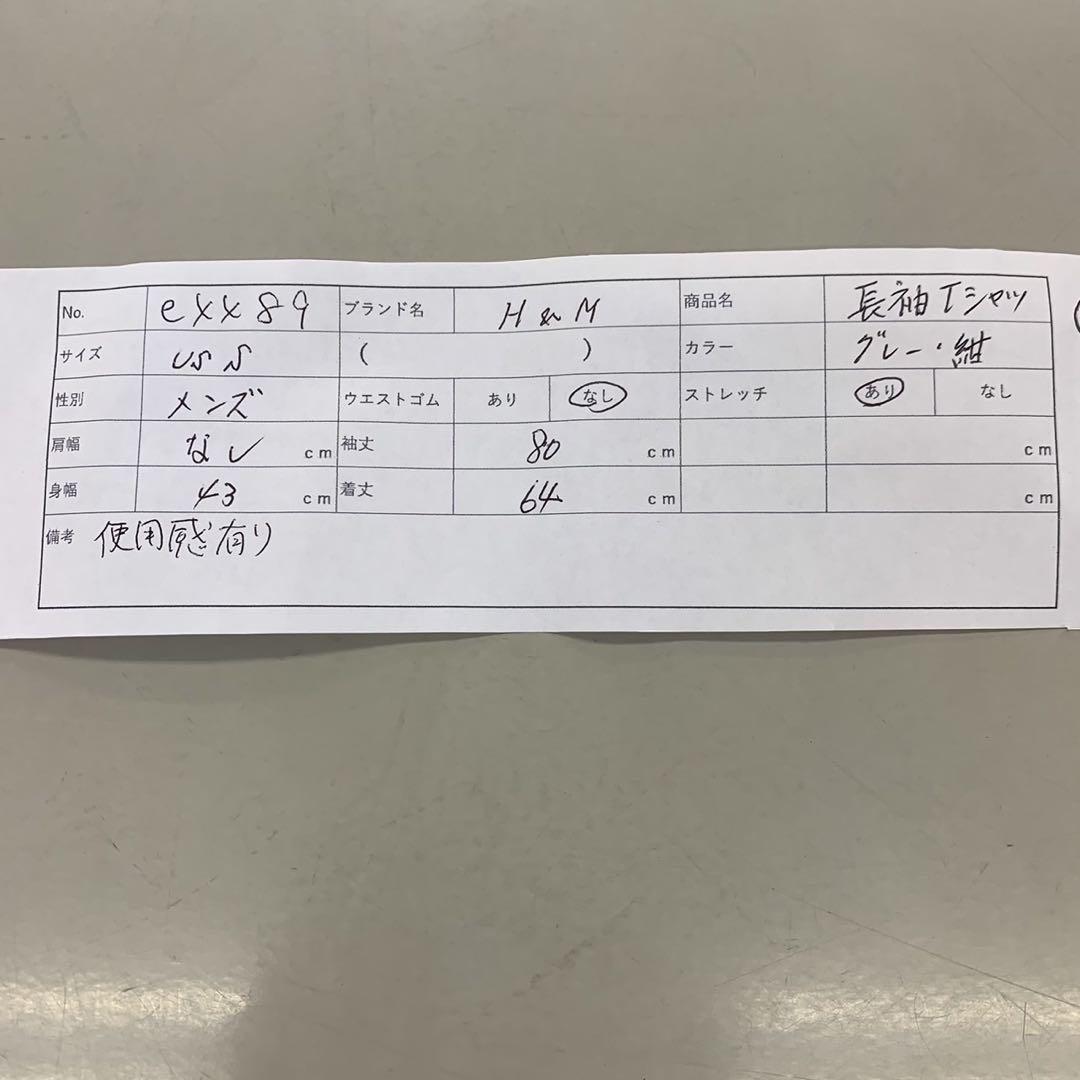 No. exx89 ブランド名 H&M 商品名 長袖Tシャツ
サイズ US S ( ) カラー グレー・紺
性別 メンズ ウエストゴム あり なし ストレッチ あり なし
肩幅 なし cm 袖丈 80 cm cm
身幅 43 cm 着丈 64 cm cm
備考 使用感有り